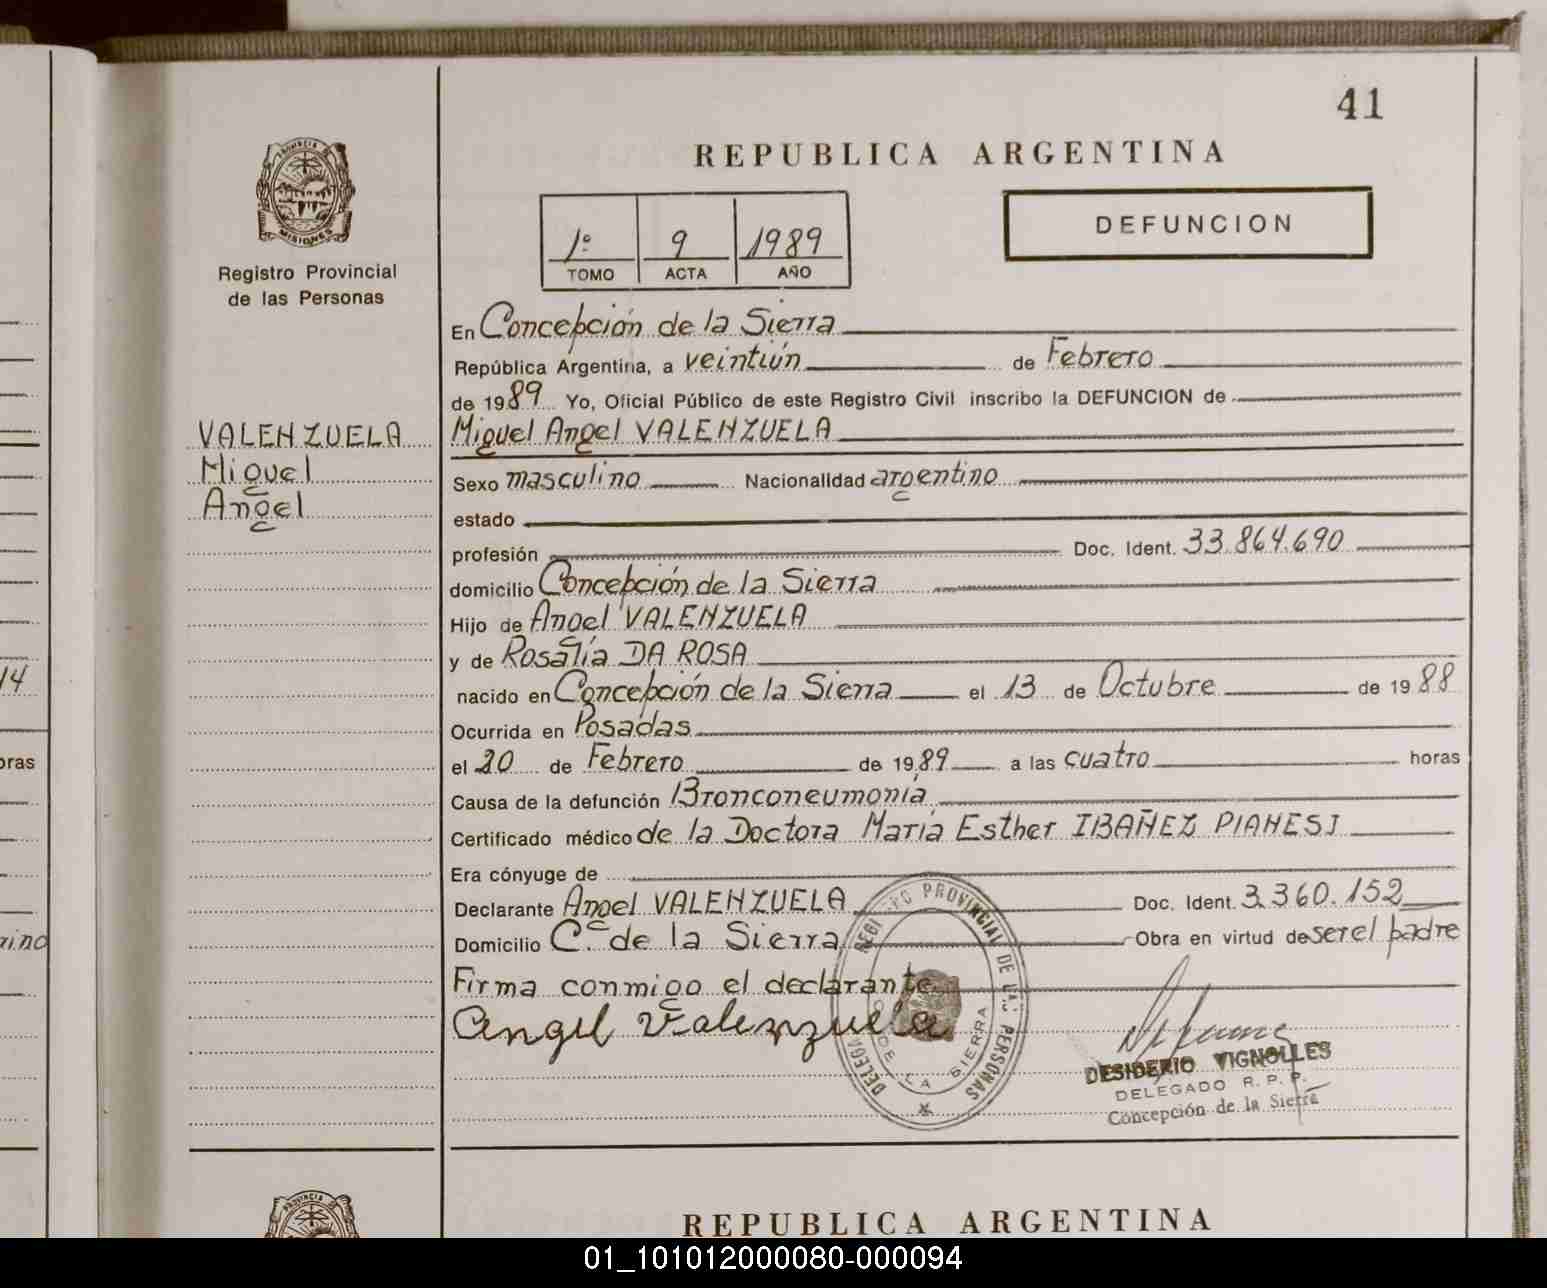 41
REPUBLICA ARGENTINA
PROVINCIA DE
MISIONES
Registro Provincial
de las Personas
1º 9 1989
TOMO ACTA AÑO
DEFUNCION
En Concepción de la Sierra
República Argentina, a veintiún de Febrero
de 1989 Yo, Oficial Público de este Registro Civil inscribo la DEFUNCION de
VALENZUELA
Miguel
Angel
Miguel Angel VALENZUELA
Sexo masculino Nacionalidad argentino
estado
profesión Doc. Ident. 33.864.690
domicilio Concepción de la Sierra
Hijo de Angel VALENZUELA
y de Rosalía DA ROSA
nacido en Concepción de la Sierra el 13 de Octubre de 1988
Ocurrida en Posadas
el 20 de Febrero de 1989 a las cuatro horas
Causa de la defunción Bronconeumonía
Certificado médico de la Doctora María Esther IBAÑEZ PIANESI
Era cónyuge de
Declarante Angel VALENZUELA Doc. Ident. 3.360.152
Domicilio C. de la Sierra Obra en virtud de ser el padre
Firma conmigo el declarante
Angel Valenzuela
PROVINCIAL DE LAS PERSONAS
DE LA SIERRA
DESIDERIO VIGNOLLES
DELEGADO R. P. P.
Concepción de la Sierra
14
oras
REPUBLICA ARGENTINA
PROVINCIA
01_101012000080-000094